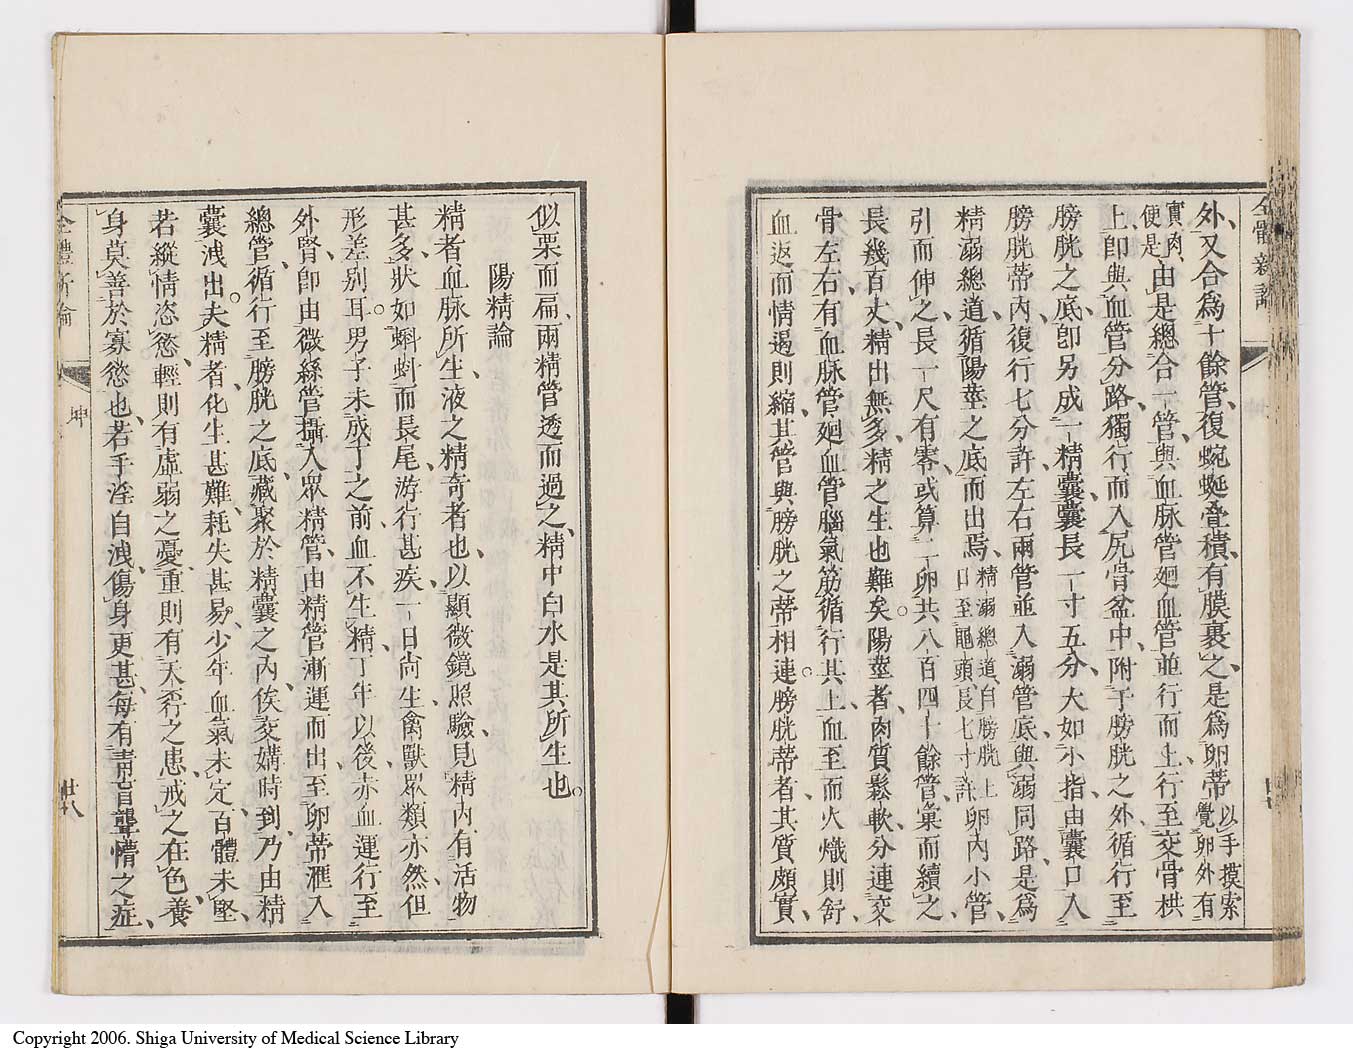 外又合爲十餘管復蜿蜒疊積有膜裹之是爲卵蒂以手摸索覺卵外有
實肉便是由是總合一管與血脉管廻血管並行而上行至交骨拱
上卽與血管分路獨行而入尻骨盆中附于膀胱之外循行至
膀胱之底卽另成一精囊囊長一寸五分大如小指由囊口入
膀胱蒂內復行七分許左右兩管並入溺管底與溺同路是爲
精溺總道循陽莖之底而出焉精溺總道自膀胱上口至龜頭長七寸許卵內小管
引而伸之長一尺有零或算一卵共八百四十餘管彙而續之
長幾百丈精出無多精之生也難矣陽莖者肉質鬆軟分連交
骨左右有血脉管廻血管腦氣筋循行其上血至而火熾則舒
血返而情過則縮其管與膀胱之蒂相連膀胱蒂者其質頗實
全體新論
坤
廿八
似栗而扁兩精管透而過之精中白水是其所生也
陽精論
精者血脉所生液之精奇者也以顯微鏡照驗見精內有活物
甚多狀如蝌蚪而長尾游行甚疾一日尙生禽獸眾類亦然但
形差別耳男子未成丁之前血不生精丁年以後赤血運行至
外腎卽由微絲管攝入眾精管由精管漸運而出至卵蒂滙入
總管循行至膀胱之底藏聚於精囊之內俟交媾時到乃由精
囊洩出夫精者化生甚難耗失甚易少年血氣未定百體未堅
若縱情恣慾輕則有虛弱之憂重則有夭殀之患戒之在色養
身莫善於寡慾也若手淫自洩傷身更甚每有靑盲聾惰之症
全體新論
坤
廿八
Copyright 2006. Shiga University of Medical Science Library